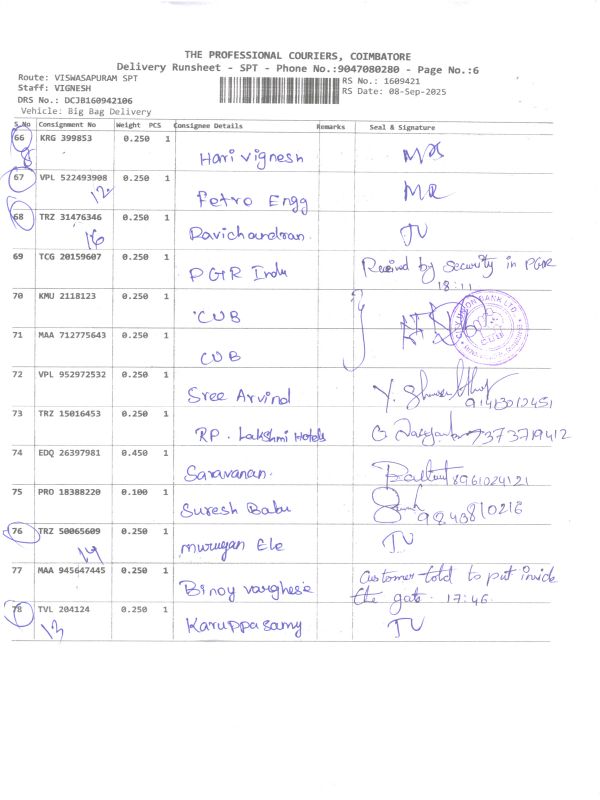 THE PROFESSIONAL COURIERS, COIMBATORE
Delivery Runsheet - SPT - Phone No.:9047080280 - Page No.:6
Route: VISWASAPURAM SPT
RS No.: 1609421
Staff: VIGNESH
RS Date: 08-Sep-2025
DRS No.: DCJB160942106
Vehicle: Big Bag Delivery
S.No Consignment No Weight PCS Consignee Details Remarks Seal & Signature
66 KRG 399853 0.250 1
Hari vignesh
67 VPL 522493908 0.250 1
12
Petro Engg
MR
68 TRZ 31476346 0.250 1
16
Ravichandran.
69 TCG 20159607 0.250 1
PGR Indu
Received by security in PGR
18:11
70 KMU 2118123 0.250 1
CUB
71 MAA 712775643 0.250 1
CUB
72 VPL 952972532 0.250 1
Sree Arvind
73 TRZ 15016453 0.250 1
RP. Lakshmi Hotels
7373719412
74 EDQ 26397981 0.450 1
Saravanan.
8961024121
75 PRO 18388220 0.100 1
Suresh Babu
76 TRZ 50065609 0.250 1
14
murugan Ele
77 MAA 945647445 0.250 1
Binoy varghese
Customer told to put inside
the gate. 17:46
78 TVL 204124 0.250 1
13
Karuppasamy